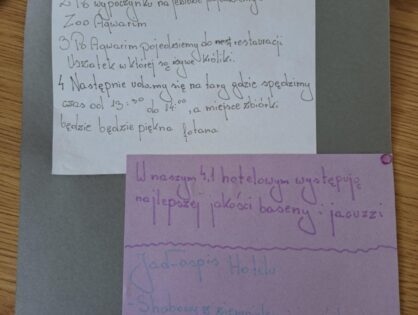 2 Po wypoczynku na
Zoo Aqwarim
3 Po Aqwarim pojedziemy do restauracji
Uszatek w której są żywe króliki.
4 Następnie udamy się na targ gdzie spędzimy
czas od 13:30 do 14:00, a miejsce zbiórki
będzie będzie piękna fotana
W naszym 4,1 hotelowym występują
najlepszej jakości baseny i jacuzzi
Jadłospis Hotelu